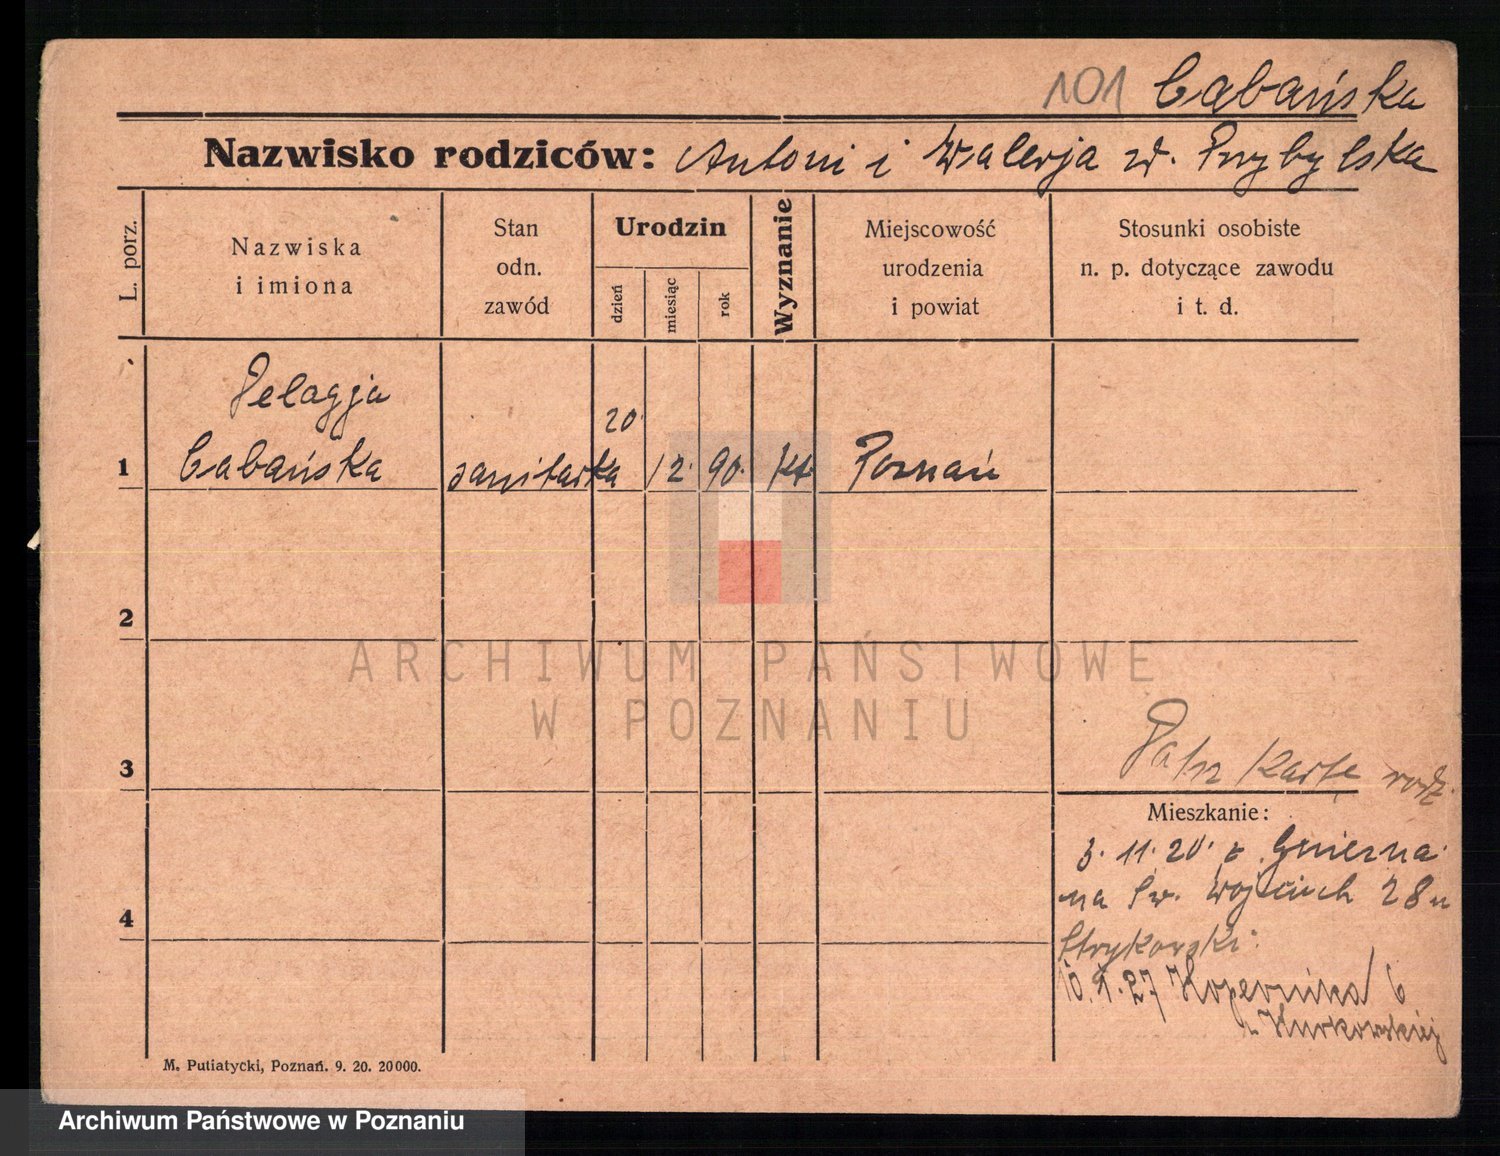 101 Cabańska
Nazwisko rodziców: Antoni i Walerja z d. Przybylska
L. porz.
Nazwiska
i imiona
Stan
odn.
zawód
Urodzin
dzień
miesiąc
rok
Wyznanie
Miejscowość
urodzenia
i powiat
Stosunki osobiste
n. p. dotyczące zawodu
i t. d.
Pelagja
1 Cabańska sanitarka 20. 12. 90. kt. Poznań
2
3
Patrz Kartę rodz.
Mieszkanie:
3. 11. 20. z Gniezna
na Św. Wojciech 28 u
Strykowski
4
10. 1. 27 Kopernika 6
u Kurkowskiej
M. Putiatycki, Poznań. 9. 20. 20000.
ARCHIWUM PAŃSTWOWE
W POZNANIU
Archiwum Państwowe w Poznaniu